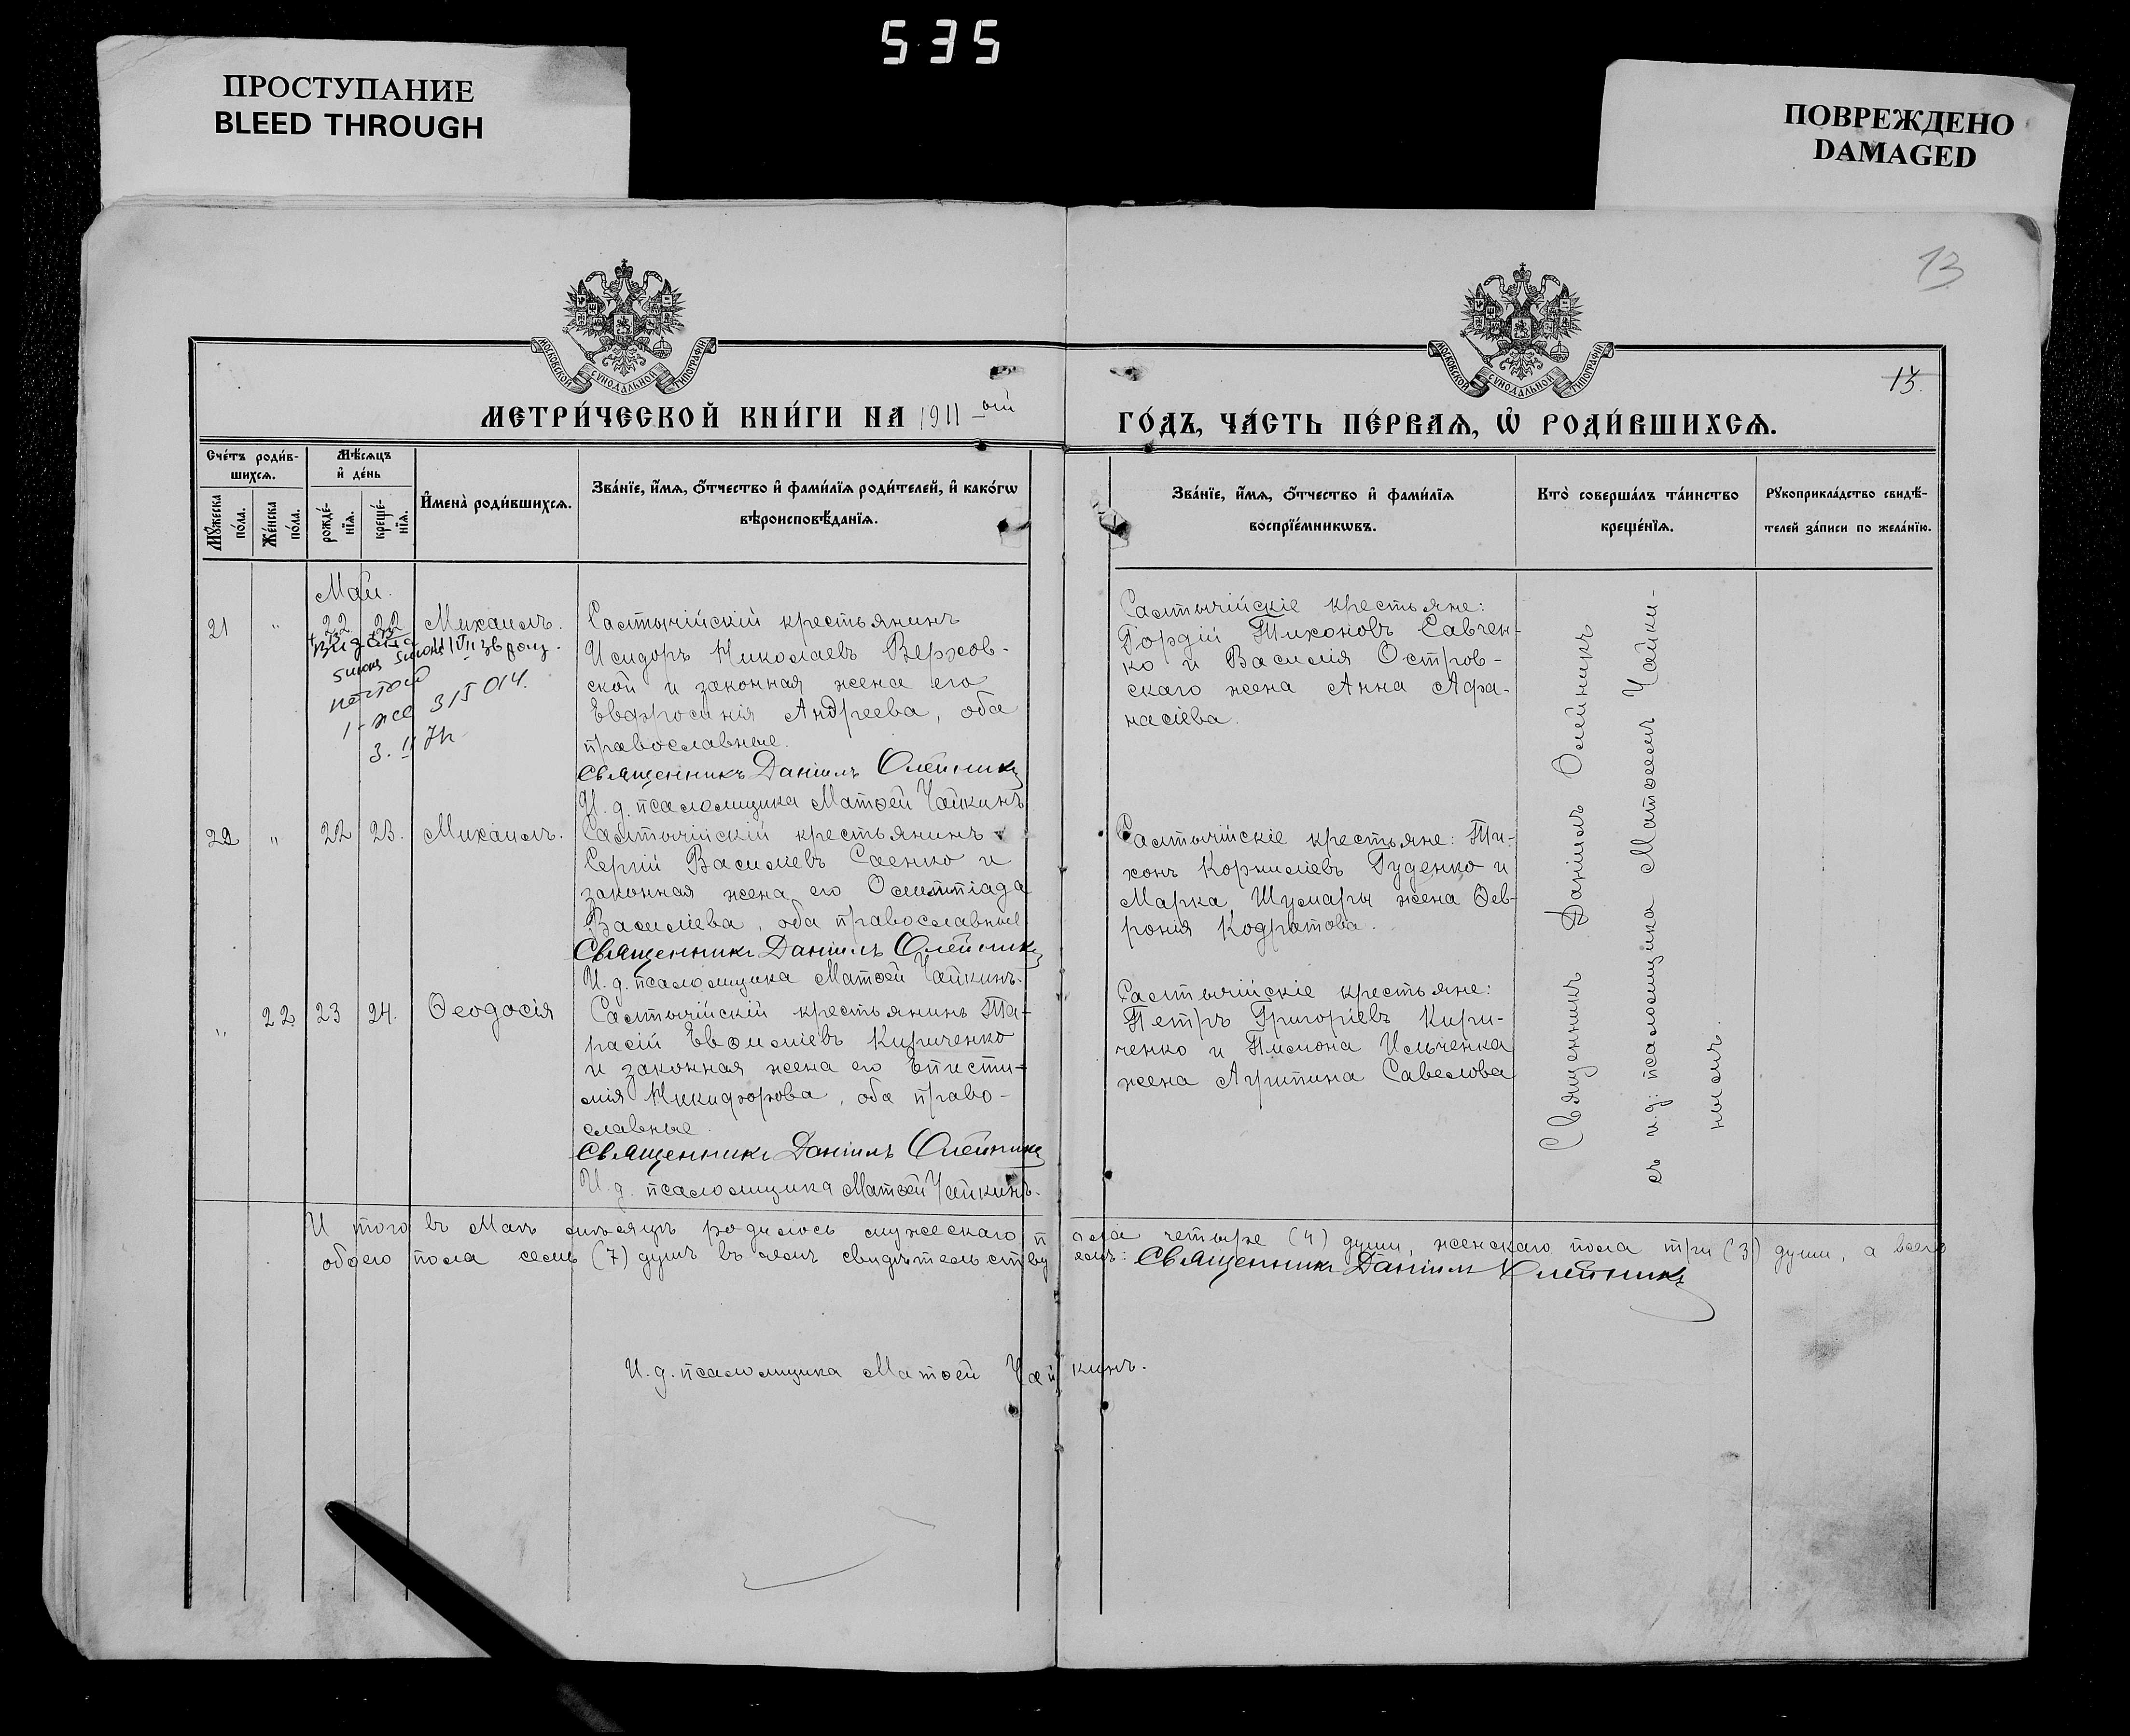 535
ПРОСТУПАНИЕ
BLEED THROUGH
ПОВРЕЖДЕНО
DAMAGED
13
МОСКОВСКОЙ СѴНОДАЛЬНОЙ ТИПОГРАФІИ
МОСКОВСКОЙ СѴНОДАЛЬНОЙ ТИПОГРАФІИ
13.
МЕТРИ́ЧЕСКОЙ КНИ́ГИ НА 1911-ый
ГО́ДЪ, ЧА́СТЬ ПЕ́РВАѦ, Ѽ РОДИ́ВШИХСѦ.
Сче́тъ роди́в-
шихсѧ.
Мꙋ́жеска
по́ла.
Же́нска
по́ла.
Мѣ́сѧцъ
и҆ де́нь
рожде́-
нїѧ.
креще́-
нїѧ.
И҆мена̀ роди́вшихсѧ.
Зва́нїе, и҆́мѧ, ѻ҆́тчество и҆ фами́лїѧ роди́телей, и҆ како́гѡ
вѣроисповѣ́данїѧ.
Зва́нїе, и҆́мѧ, ѻ҆́тчество и҆ фами́лїѧ
воспрїе́мникѡвъ.
Кто̀ соверша́лъ та́инство
креще́нїѧ.
Рꙋкоприкла́дство свидѣ́-
телей за́писи по жела́нїю.
Май.
21 " 22 22 Михаилъ.
Салтычійскій крестьянинъ
Исидоръ Николаевъ Верхов-
ской и законная жена его
Евфросинія Андреева, оба
православные.
Священникъ Даніилъ Олейникъ
И. д. псаломщика Матѳей Чайкинъ
1-жс 315014.
Салтычійскіе крестьяне:
Гордій Тихоновъ Савчен-
ко и Василія Остров-
скаго жена Анна Афа-
насіева.
22 " 22 23. Михаилъ.
Салтычійскій крестьянинъ
Сергій Василіевъ Саенко и
законная жена его Олимпіада
Василіева, оба православные
Священникъ Даніилъ Олейникъ
И. д. псаломщика Матѳей Чайкинъ.
Салтычійскіе крестьяне: Ти-
хонъ Корниліевъ Гуденко и
Марка Шумары жена Фев-
ронія Кодратова.
" 22 23 24. Ѳеодосія
Салтычійскій крестьянинъ Та-
расій Евѳиміевъ Кириченко
и законная жена его Епісти-
мія Никифорова, оба право-
славные.
Священникъ Даніилъ Олейникъ
И. д. псаломщика Матѳей Чайкинъ.
Салтычійскіе крестьяне:
Петръ Григоріевъ Кири-
ченко и Пимона Ильченка
жена Агрипина Савелова
Священникъ Даніилъ Олейникъ
съ и.д: псаломщика Матѳеемъ Чайки-
нымъ.
И того въ Маѣ мѣсяцѣ родилось мужескаго пола четыре (4) души, женскаго пола три (3) души, а всего
обоего пола семь (7) душъ въ чемъ свидѣтельствуемъ: Священникъ Даніилъ Олейникъ
И. д. псаломщика Матѳей Чайкинъ.